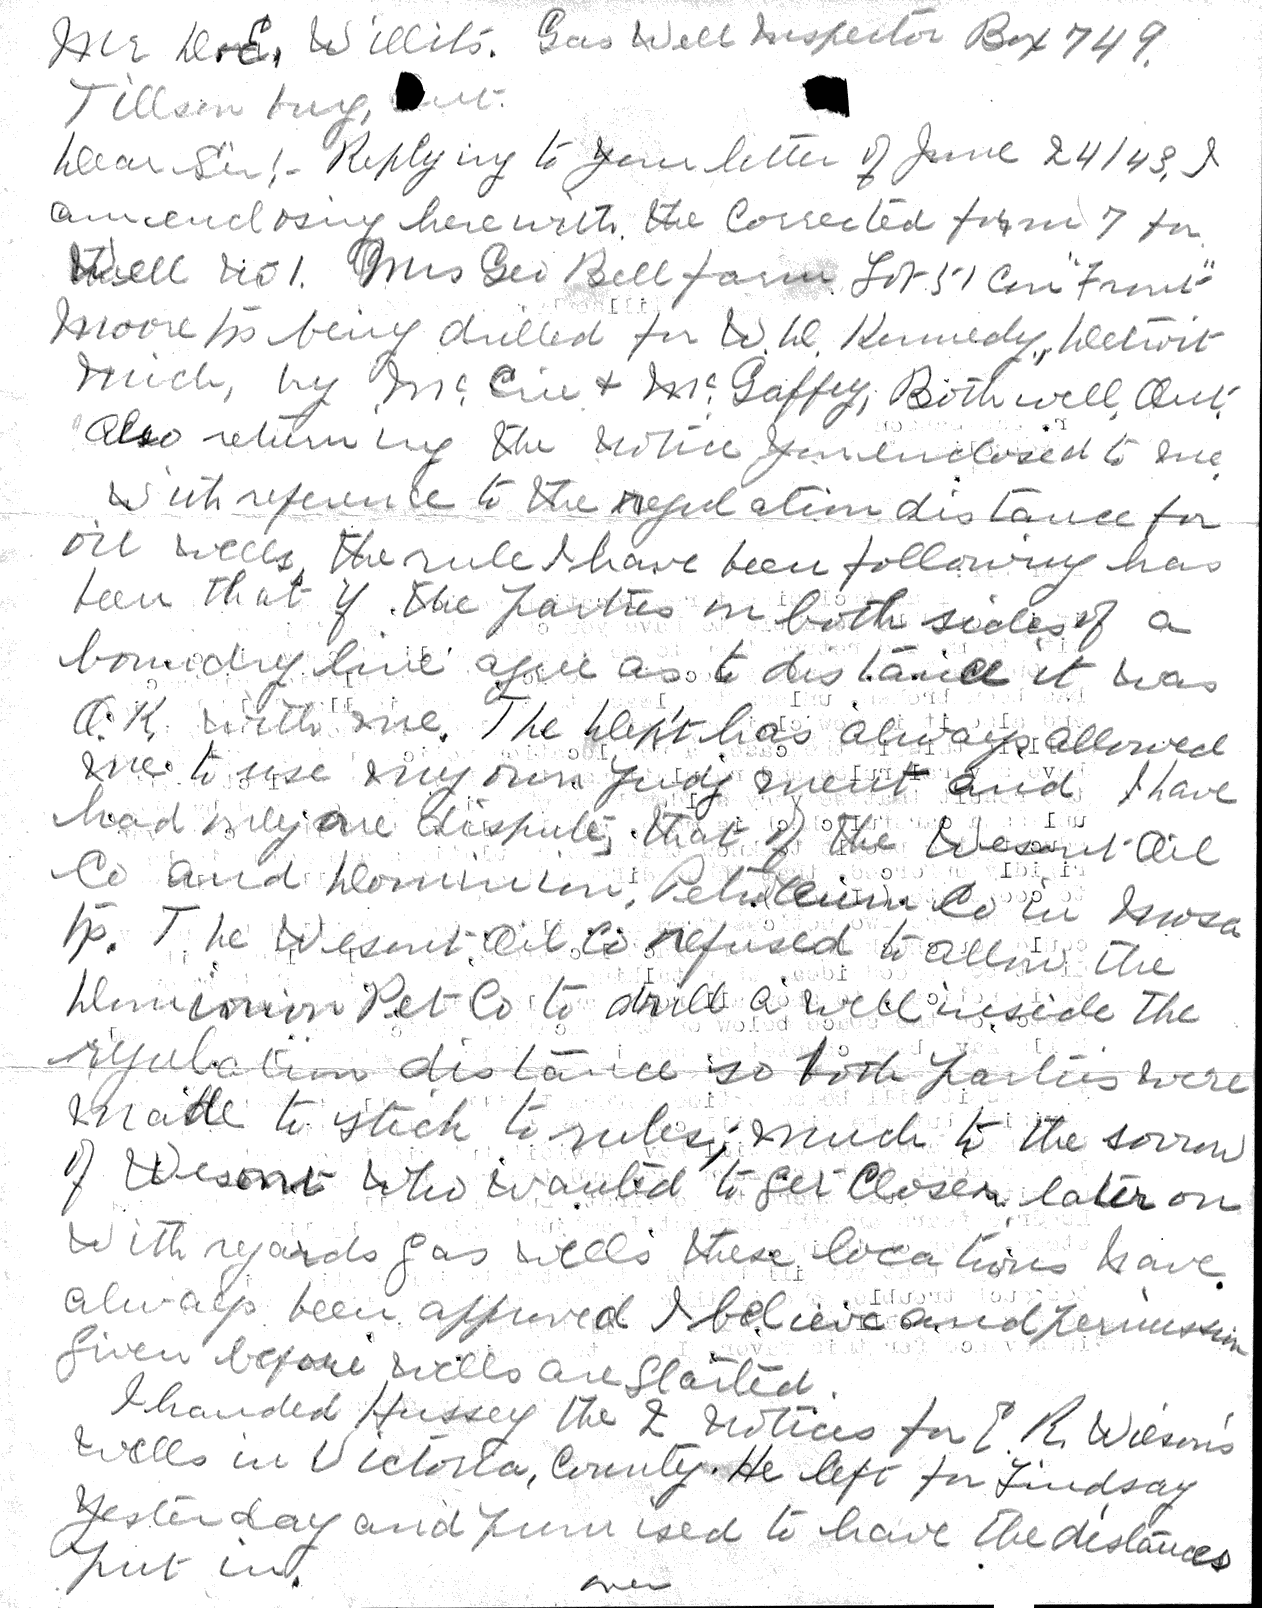 Mr D.E. Willits. Gas Well Inspector Box 749.
Tillsonburg, Ont.
Dear Sir!- Replying to your letter of June 24/43, I
am enclosing herewith the corrected form 7 for
Well No 1. Mrs Geo Bell farm Lot 51 Con "Front"
Moore tp being drilled for W.D. Kennedy, Detroit
Mich, by Mc & McGaffey, Bothwell, Ont.
Also returning the notice you enclosed to me.
With reference to the regulation distance for
oil wells, the rule I have been following has
been that if the parties on both sides of a
boundry line agree as to distance it was
O.K. with me. The Dep't has always allowed
me to use my own judgment and I have
had only one dispute, that of the Wesont Oil
Co and Dominion Petroleum Co in Mosa
tp. The Wesont Oil Co refused to allow the
Dominion Pet Co to drill a well inside the
regulation distance so both parties were
made to stick to rules, much to the sorrow
of Wesont who wanted to get closer later on
With regards gas wells these locations have
always been approved I believe and permission
given before wells are started.
I handed Hussey the 2 notices for E. R. Wilson's
wells in Victoria, County. He left for Lindsay
yesterday and promised to have the distances
put in.
over